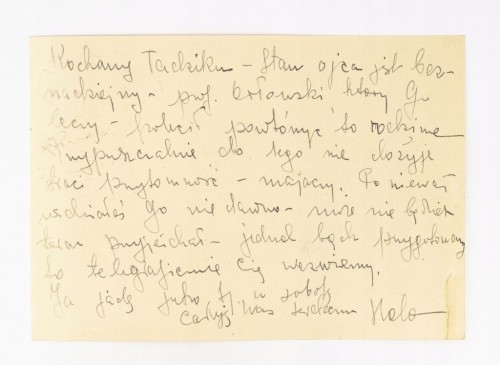 Kochany Tadziku – Stan ojca jest bez-
nadziejny – prof. Orłowski który Go
leczy – polecił powtórzyć to rodzinie
wypuszczalnie do tego nie dożyje
traci przytomność – majaczy. Ponieważ
widziałeś Go niedawno – może nie będziesz
teraz przyjeżdżał – jednak bądź przygotowany
to telegraficznie Cię wezwiemy.
Ja jadę jutro tj. w sobotę
Całuję Was serdecznie Hala